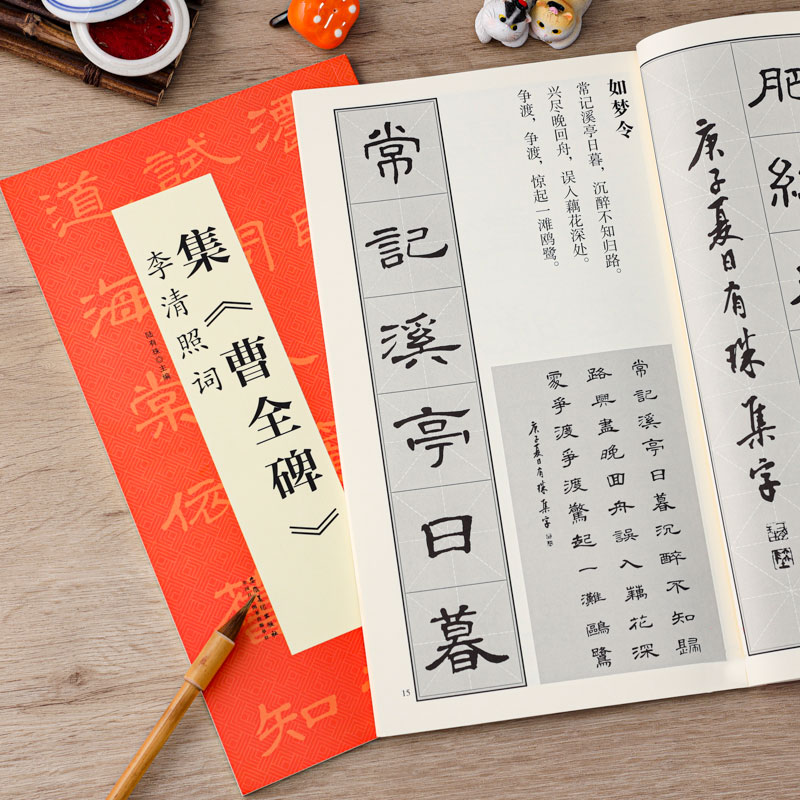 集《曹全碑》
李清照词
陆有珠◎主编
道試
海
棠
依
知
如梦令
常记溪亭日暮，沉醉不知归路。
兴尽晚回舟，误入藕花深处。
争渡，争渡，惊起一滩鸥鹭。
常記溪亭日暮
常記溪亭日暮沉醉不知歸
路興盡晚回舟誤入藕花深
處爭渡爭渡驚起一灘鷗鷺
庚子夏日有珠集字
15
肥
庚子夏日有珠集字